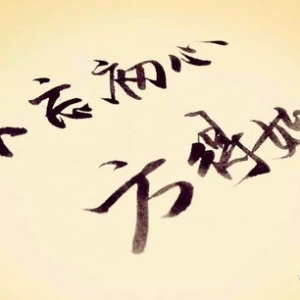 不忘初心
方得始